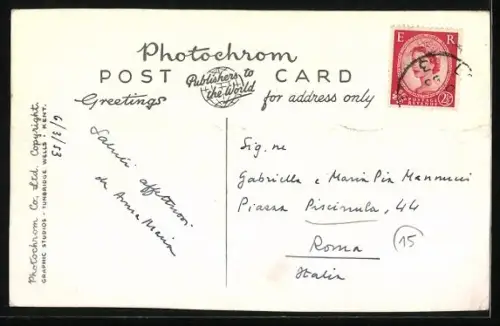 Photochrom
POST CARD
Publishers to
the World
Greetings
for address only
E R
2½
Saluti affettuosi
da Anna Maria
Sig.ne
Gabriella e Maria Pia Mannucci
Piazza Piscinula, 44
Roma
15
Italia
6/3/53
Photochrom Co., Ltd. Copyright.
GRAPHIC STUDIOS - TUNBRIDGE WELLS - KENT.